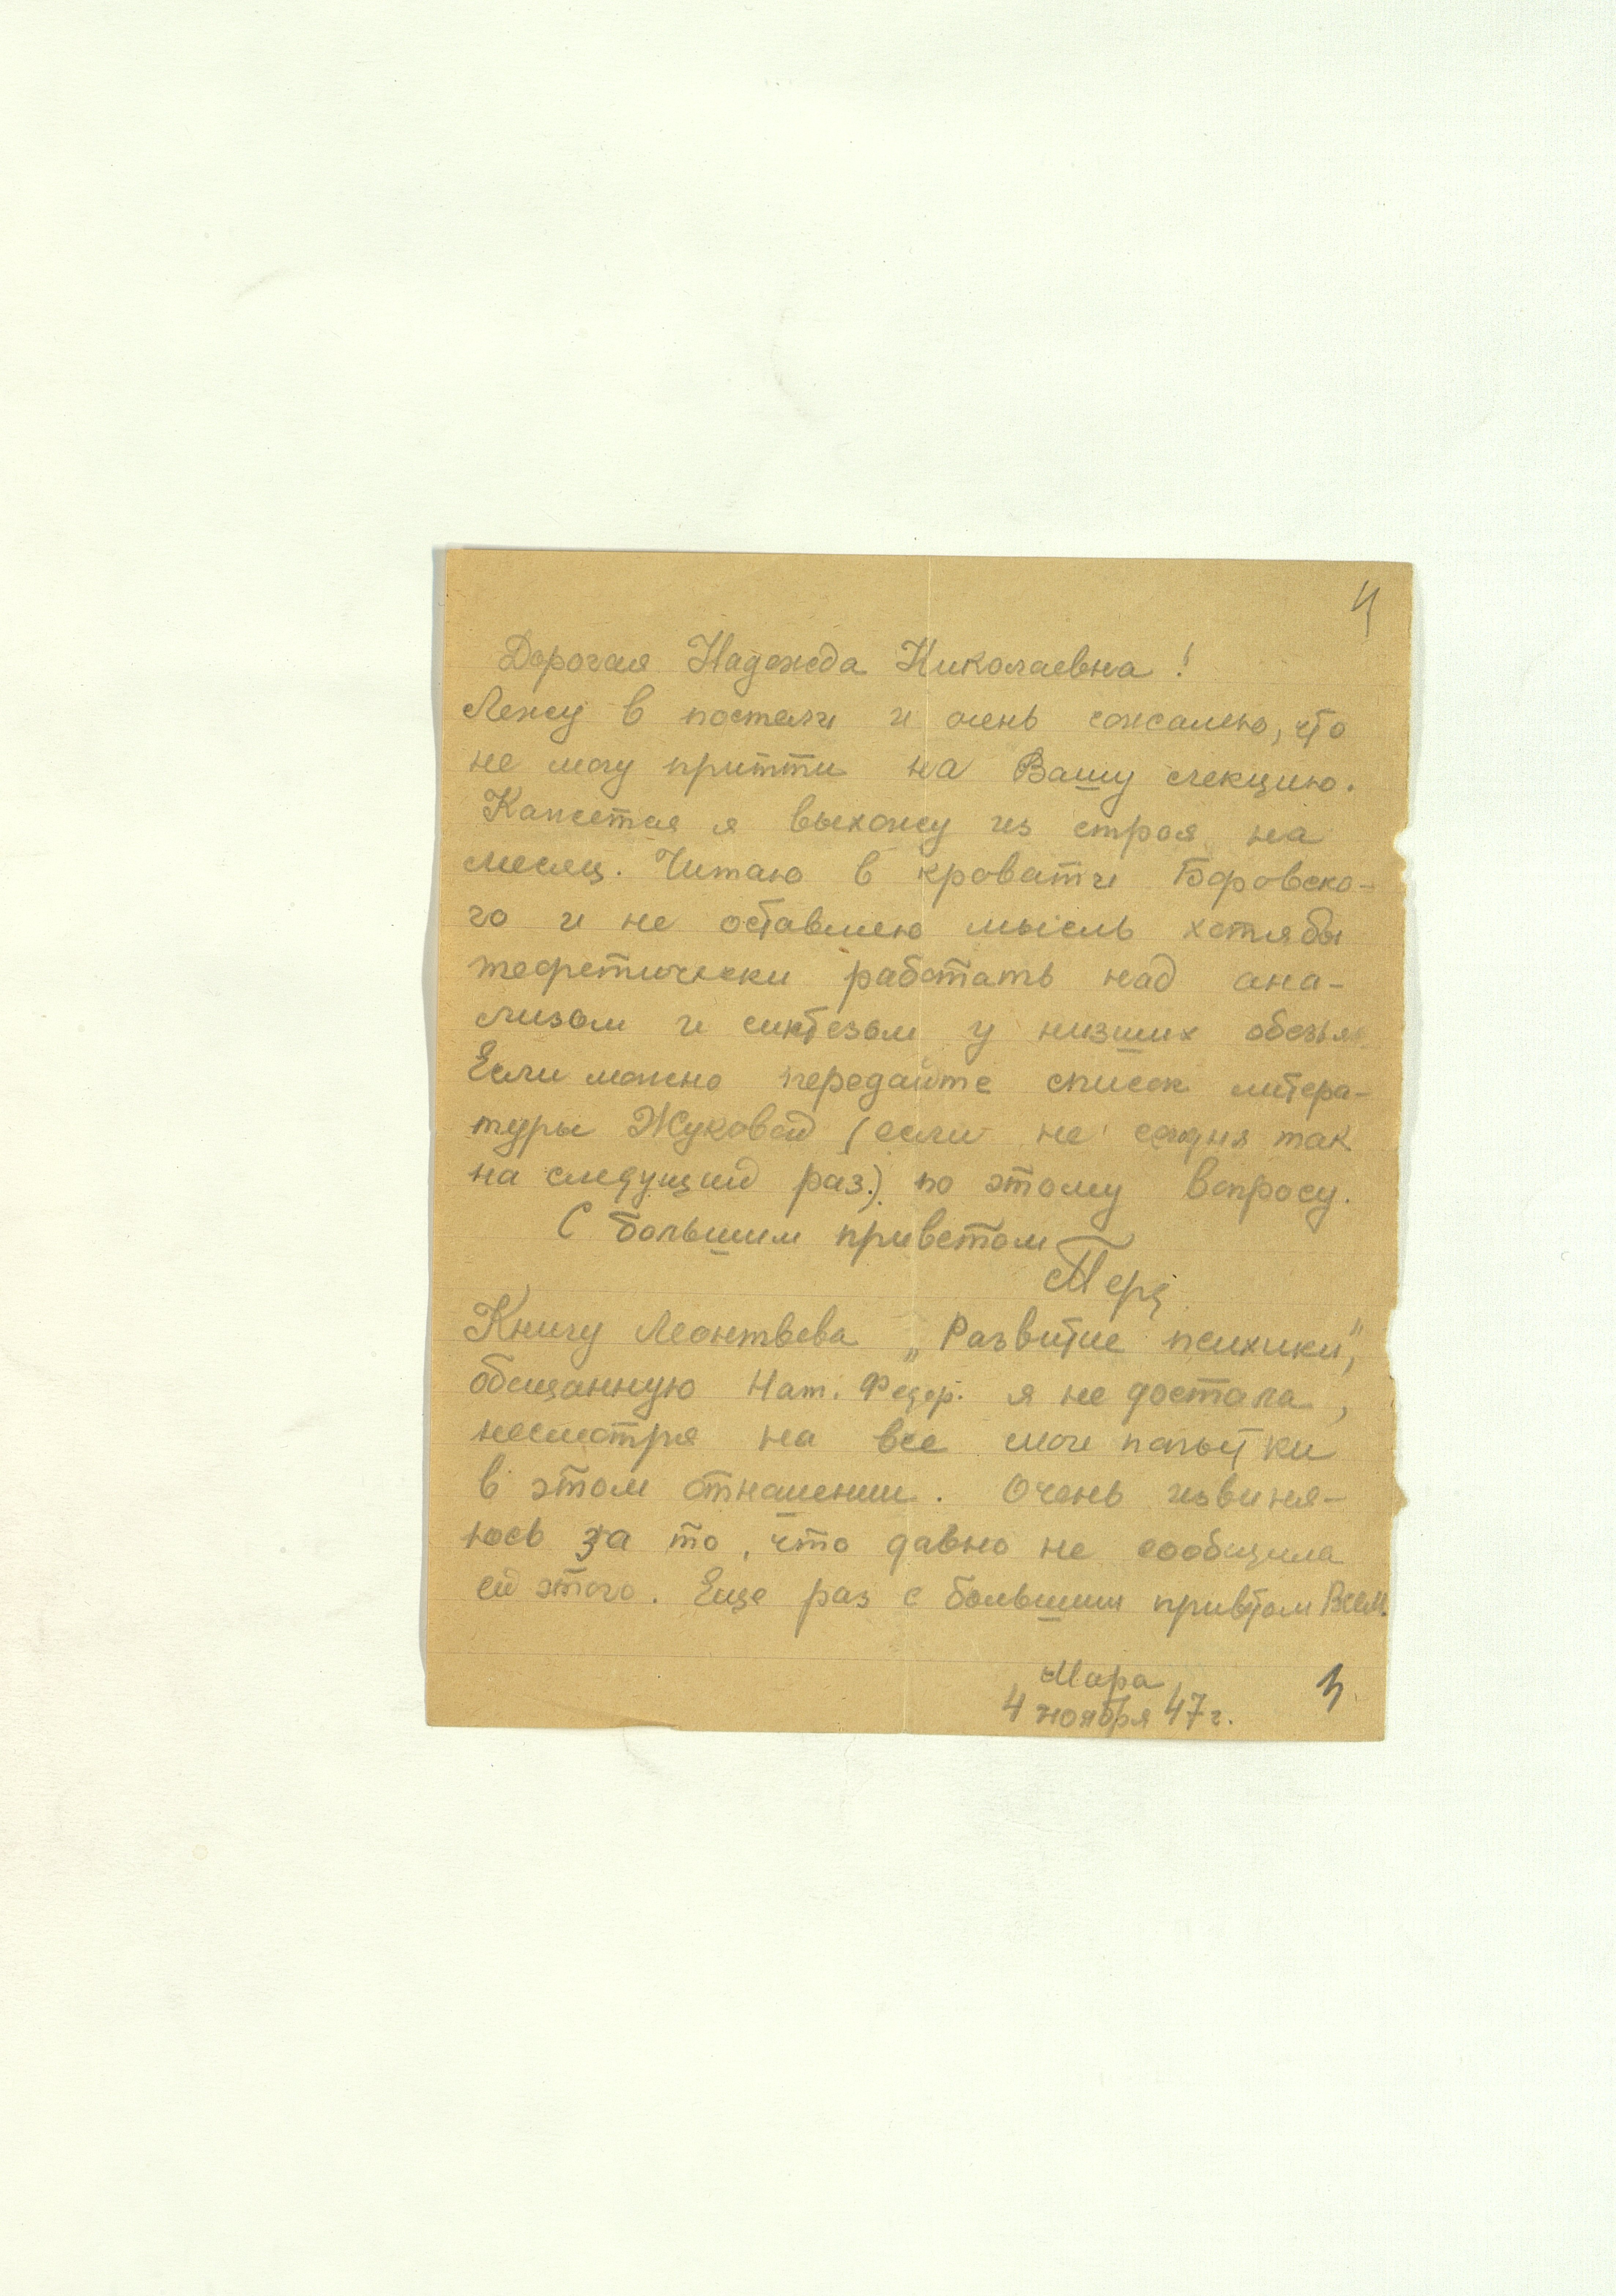 4
Дорогая Надежда Николаевна!
Лежу в постели и очень сожалею, что
не могу притти на Вашу лекцию.
Кажется я выхожу из строя на
месяц. Читаю в кровати Боровско-
го и не оставляю мысль хотябы
теоретически работать над ана-
лизом и синтезом у низших обезья
Если можно передайте список литера-
туры Жуковой (если не сегодня так
на следущий раз.) по этому вопросу.
С большим приветом
Книгу Леонтьева „Развитие психики",
обещанную Нат. Федер. я не достала,
несмотря на все мои попытки
в этом отношении. Очень извиня-
юсь за то, что давно не сообщила
ей этого. Еще раз с большим приветом Всем.
Мара
4 ноября 47 г.